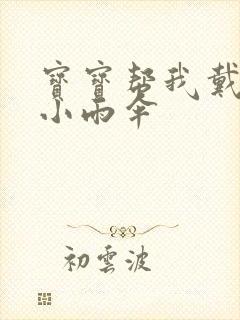 寶寶幫我戴
小雨傘
初雲波